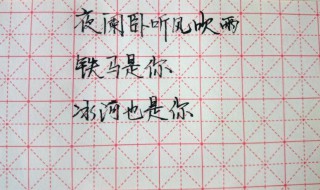 夜阑卧听风吹雨
铁马是你
冰河也是你